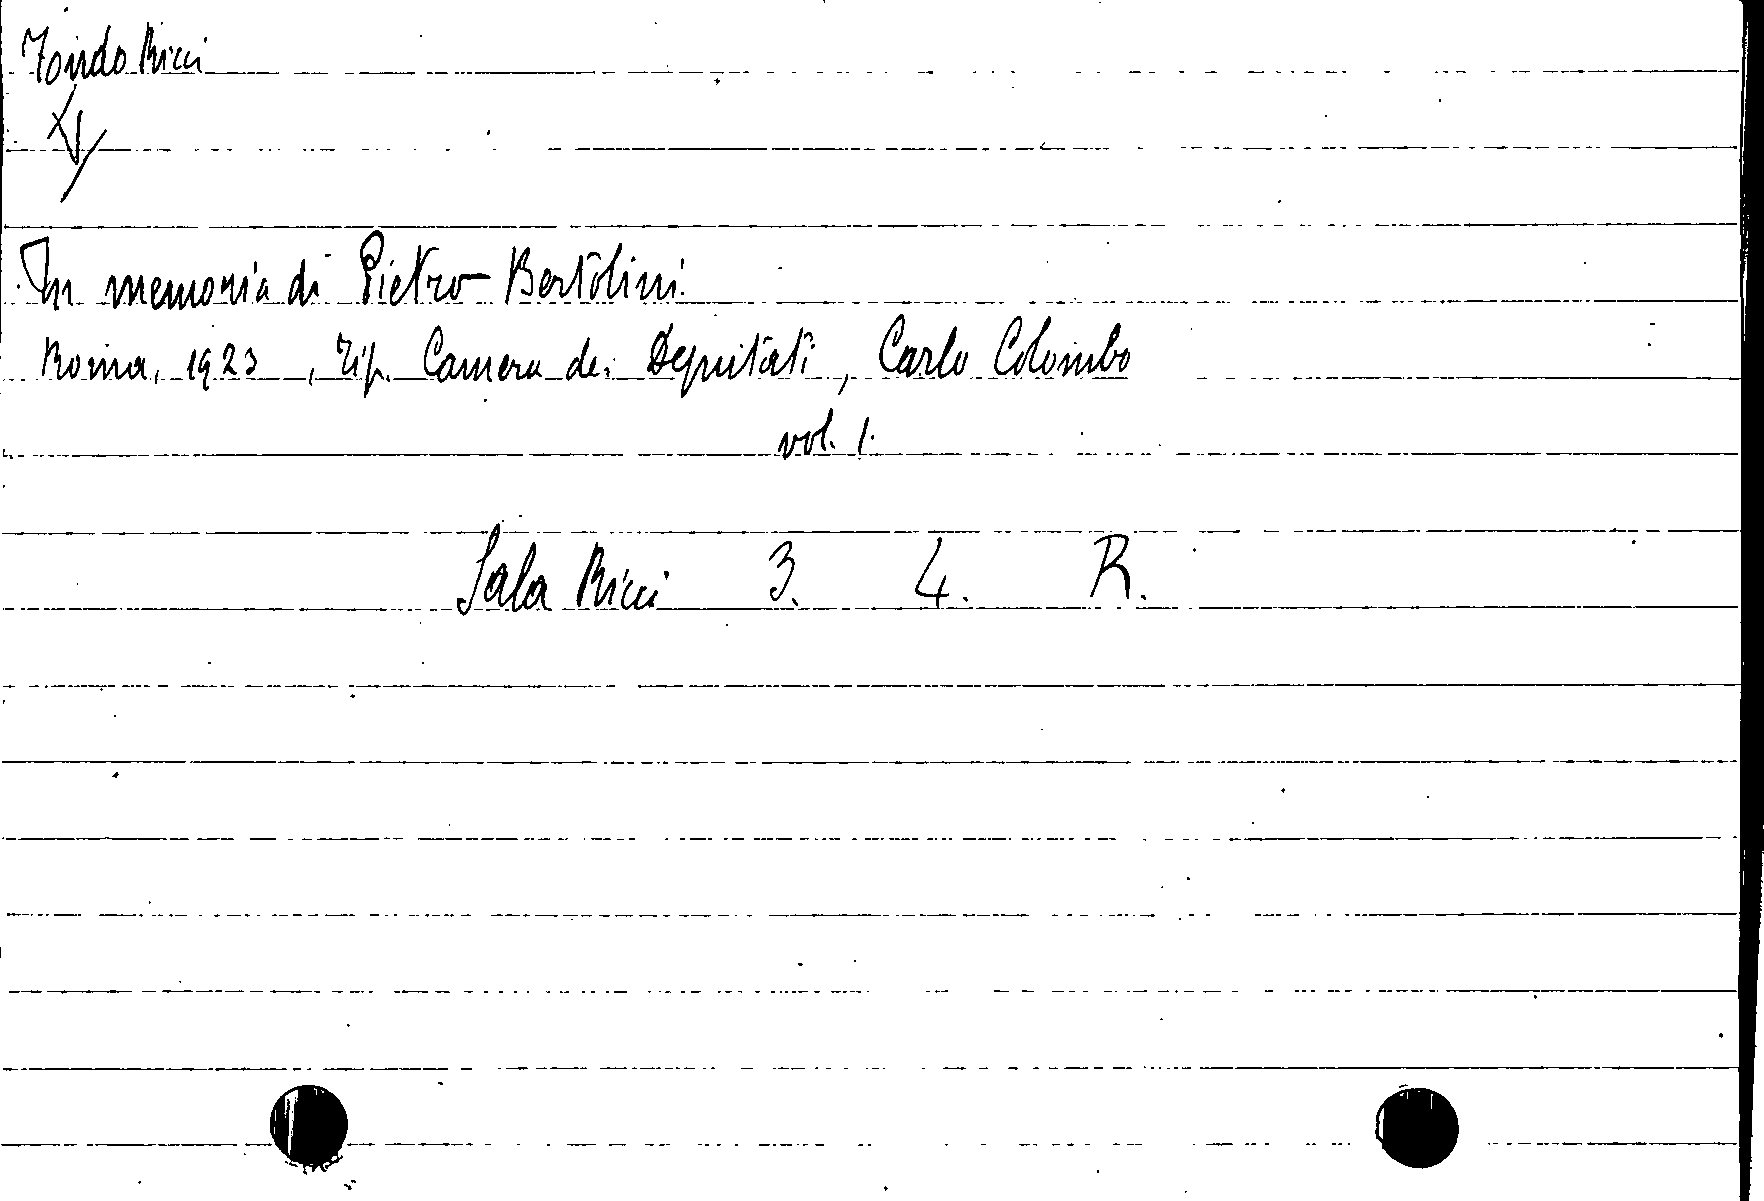 Fondo Ricci
In memoria di Pietro Bertolini.
Roma, 1923, Tip. Camera dei Deputati, Carlo Colombo
vol. 1.
Sala Ricci 3. 4. R.